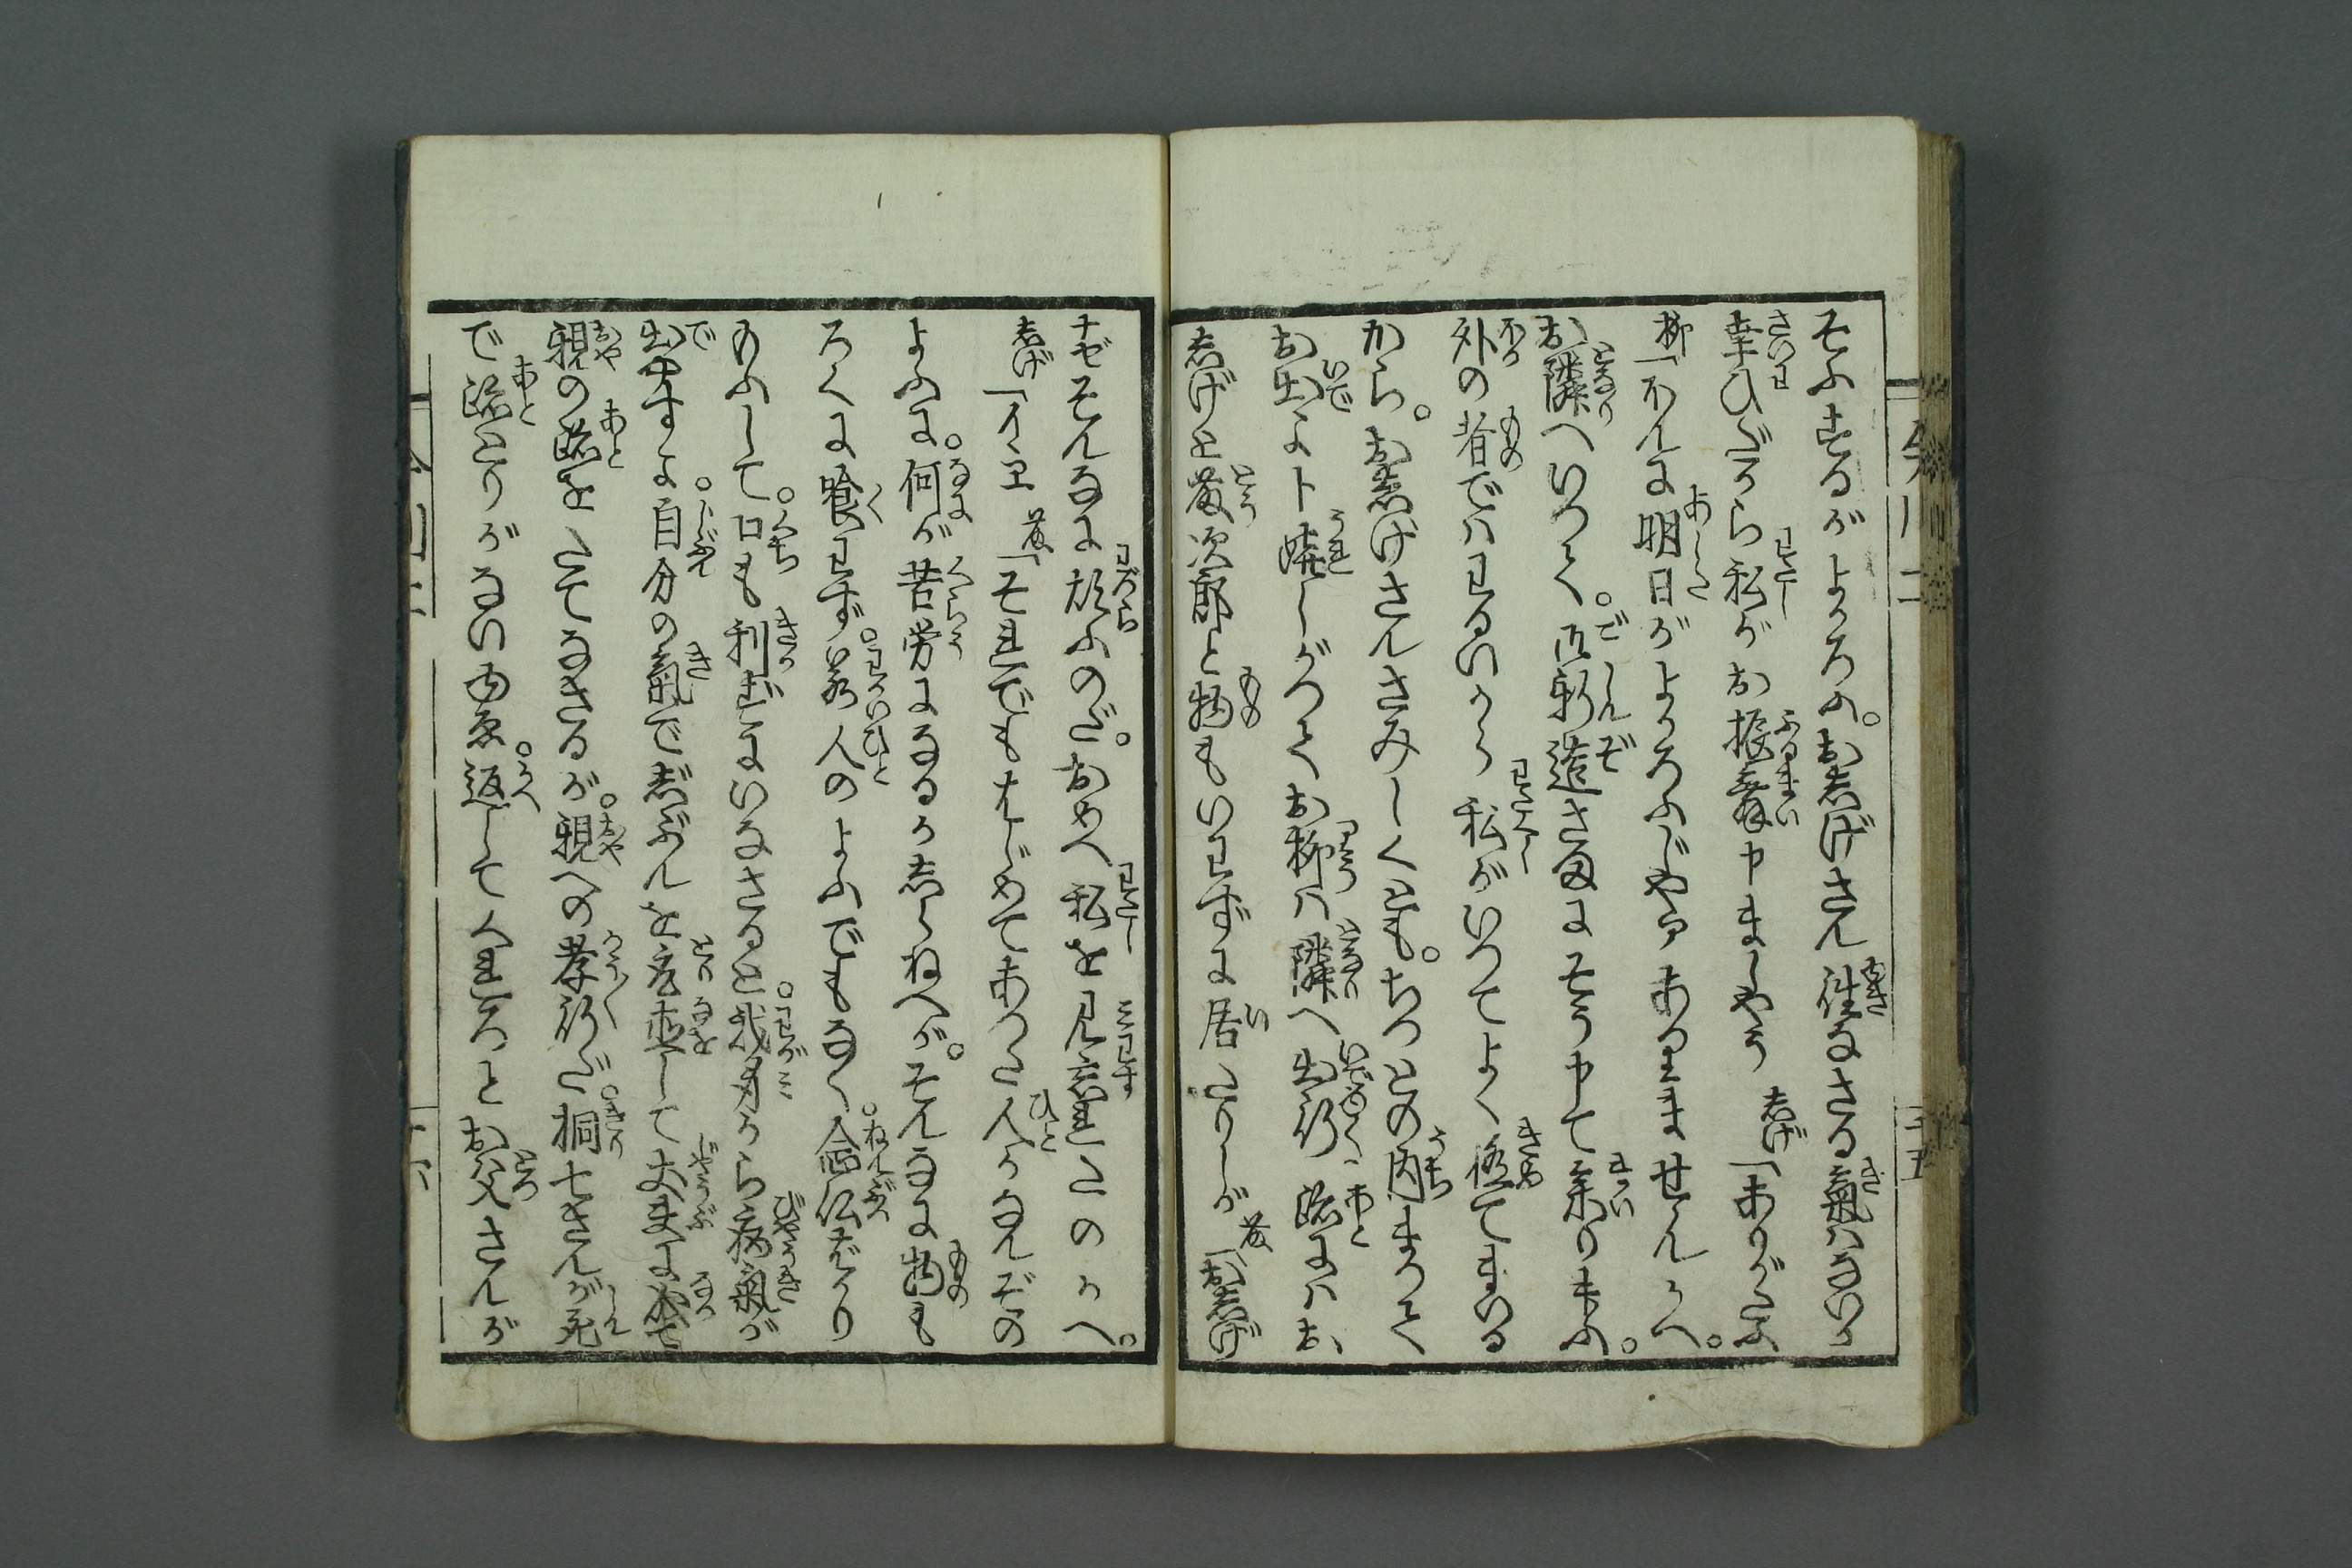 そふするがよかろふ。お志げさん往なさる氣はないか
幸ひだから私がお振舞申ましやう 志げ「ありがたふ
柳「ほんに明日がよかろふじやアありませんかへ。
お隣へいつて。御新造さまにそう申て參りませふ。
外の者ではわるいから私がいつてよく極てまいる
から。お志げさんさみしくとも。ちつとの内まつて
お出よト嬉しがつてお柳は隣へ出行、跡にはお
志げと藤次郎と物もいわずに居たりしが 藤「お志げ
ナゼそんなに栨ふのだ。おめへ私を見忘れたのかへ。
志げ「イヱ 藤「それでもはじめてあつた人かなんぞの
よふに。何が苦労になるか志らねへが。そんなに物も
ろくに喰わず。若い人のよふでもなく。念仏ばかり
もふして。口も利ずにいなさると。我身から病氣が
出やすよ。自分の氣で志ぶんを取直して丈夫になつて
親の跡をたてなさるが。親への孝行だ。桐七さんが死
で跡とりがないゆゑ。返して入れろとお父さんが